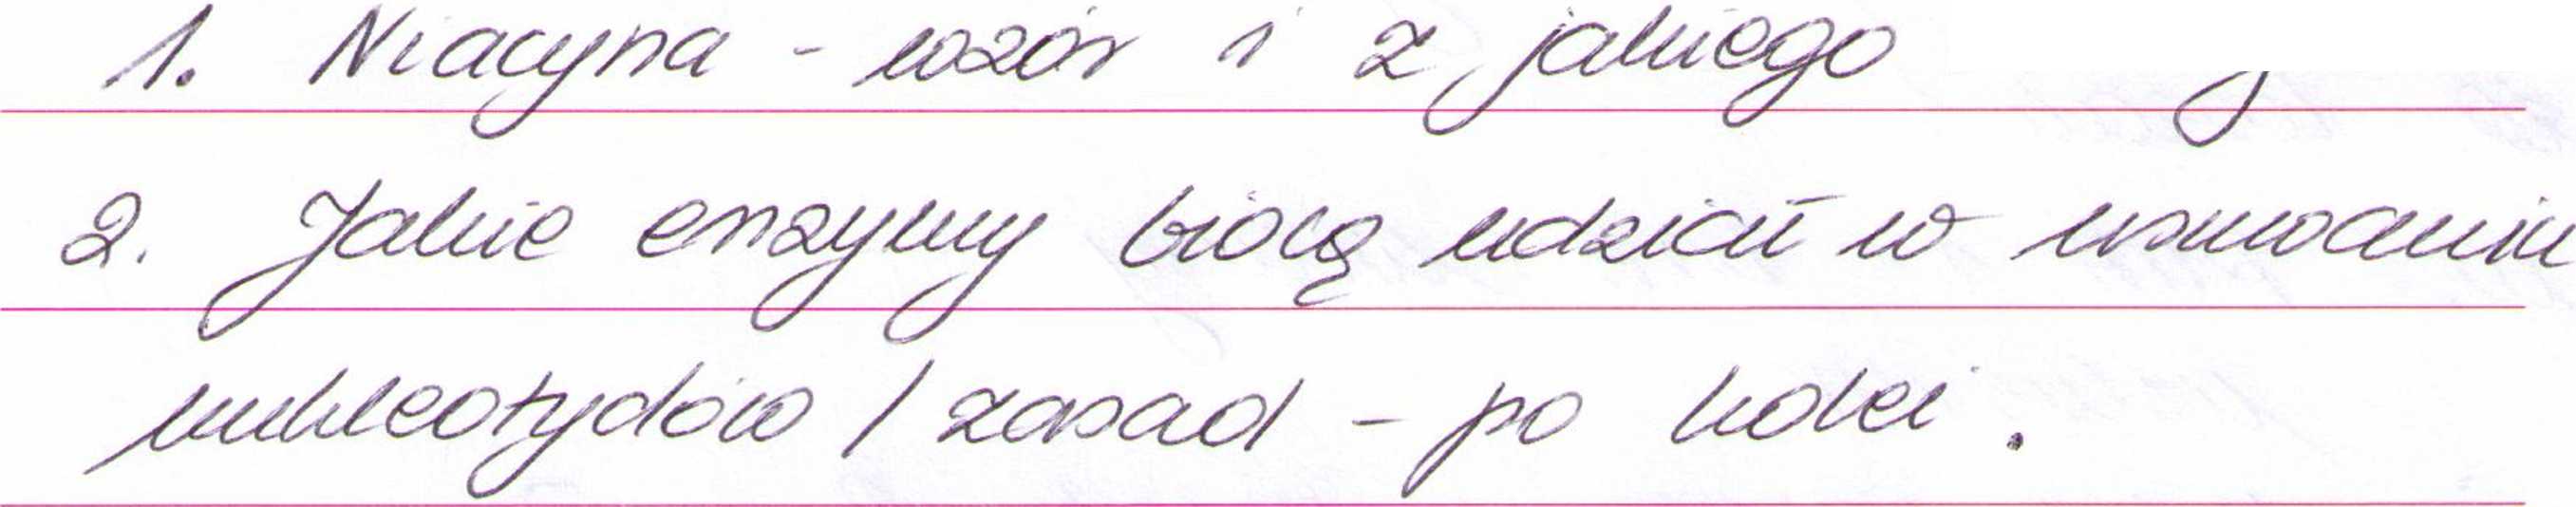 1. Niacyna - wzór i z jakiego
2. Jakie enzymy biorą udział w usuwaniu
nukleotydów / zasad - po kolei.